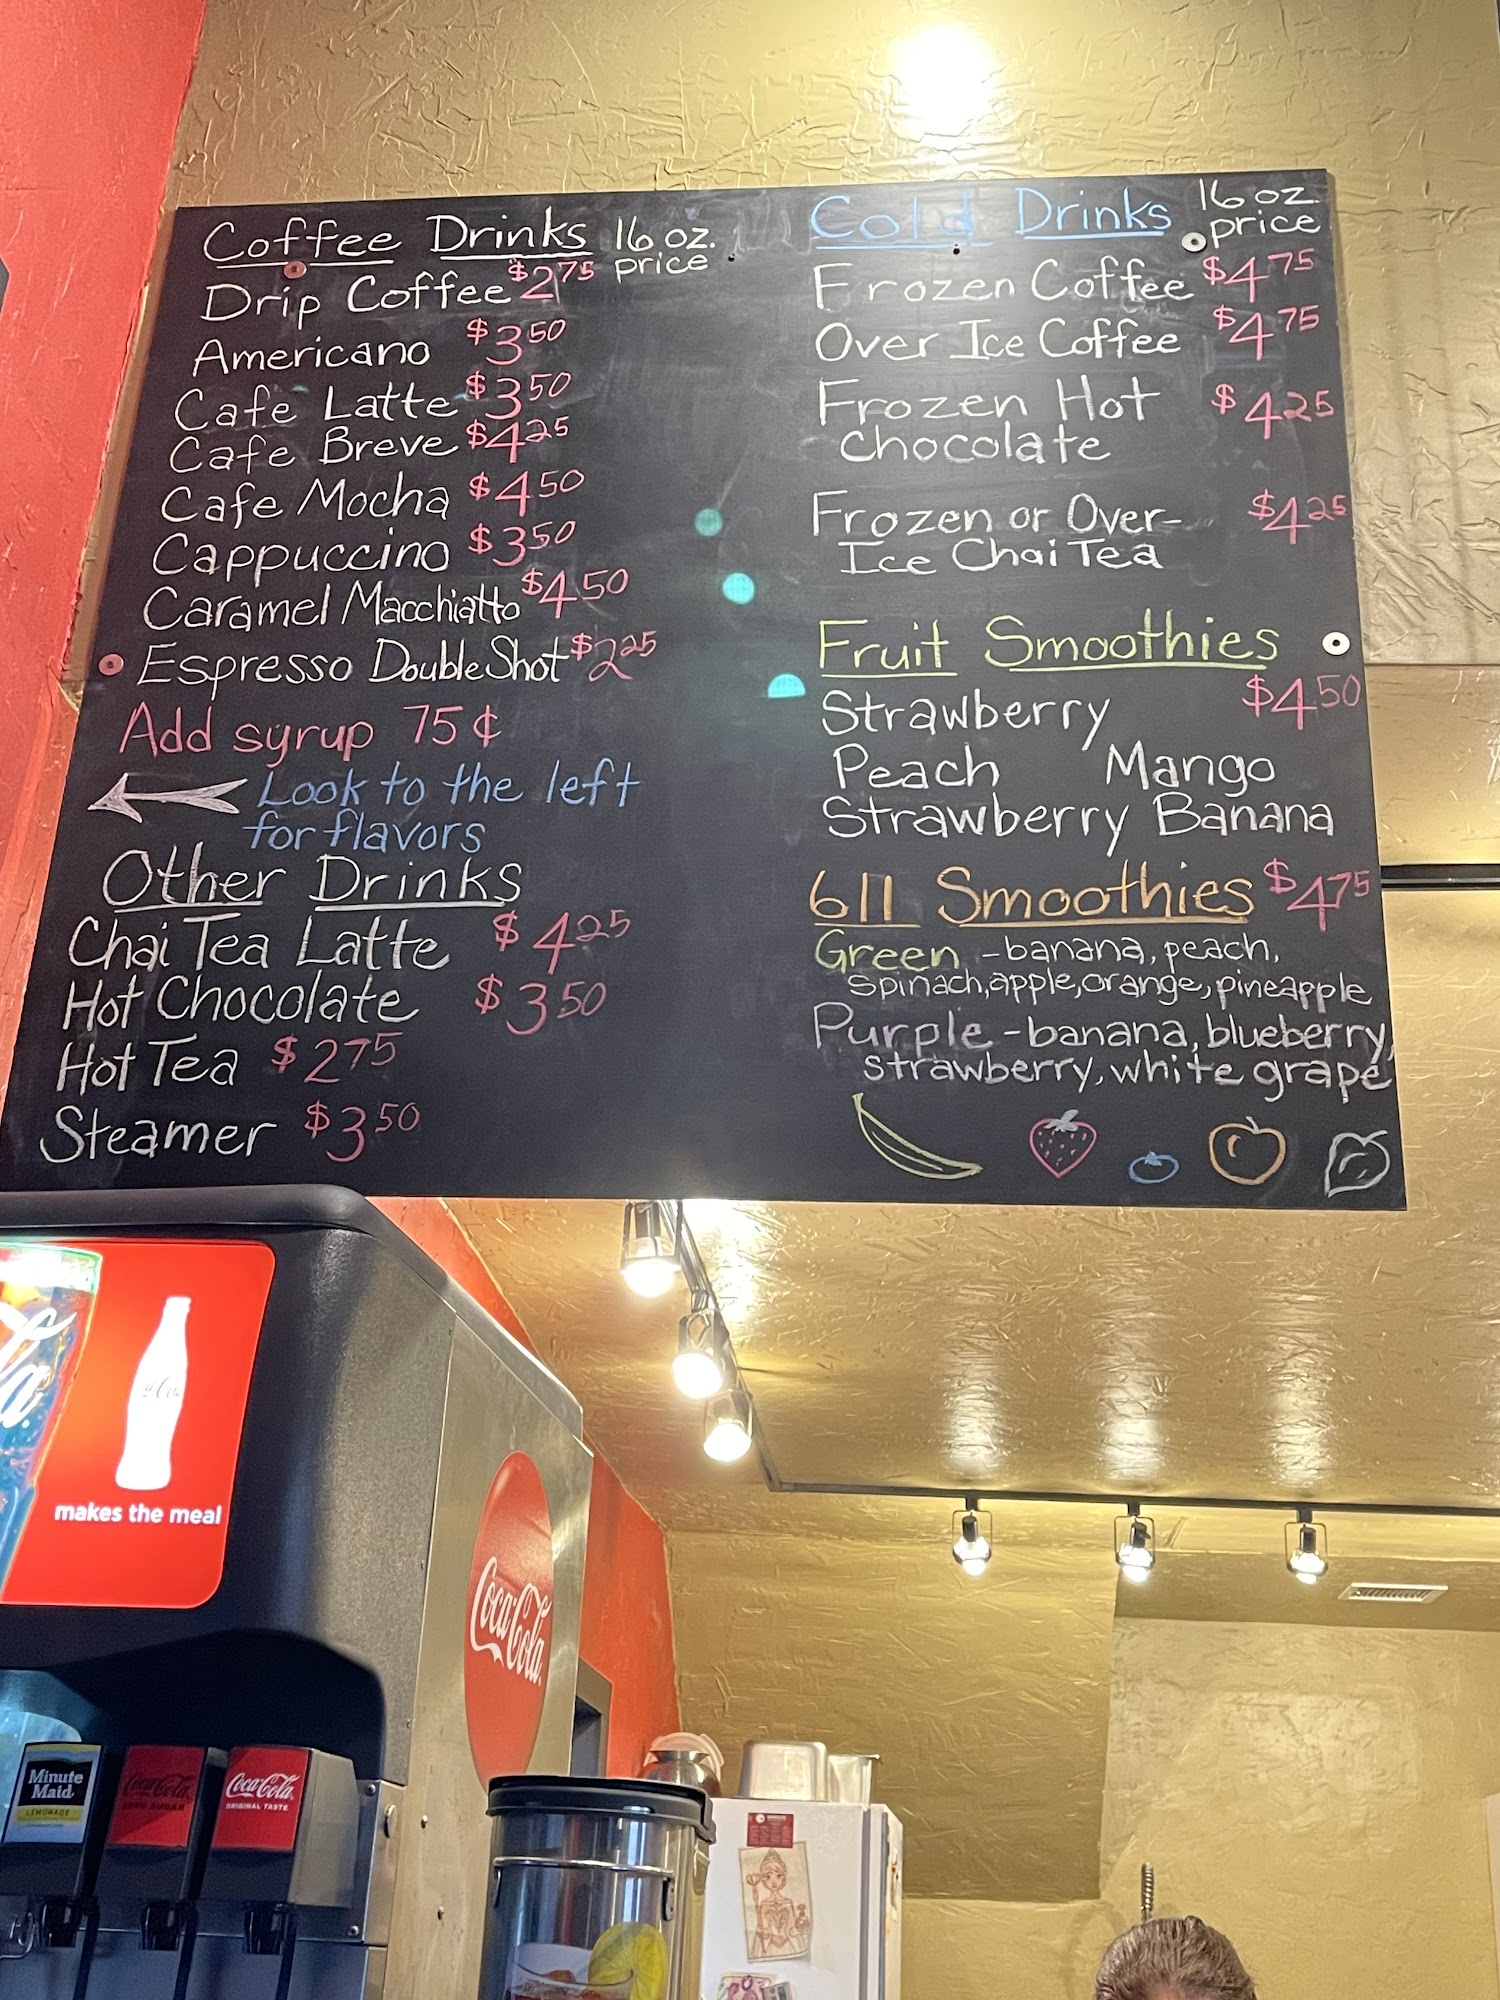 Coffee Drinks 16 oz. price
Drip Coffee $2.75
Americano $3.50
Cafe Latte $3.50
Cafe Breve $4.25
Cafe Mocha $4.50
Cappuccino $3.50
Caramel Macchiatto $4.50
Espresso Double Shot $2.25
Add syrup 75¢
Look to the left
for flavors
Other Drinks
Chai Tea Latte $4.25
Hot Chocolate $3.50
Hot Tea $2.75
Steamer $3.50
Cold Drinks 16 oz. price
Frozen Coffee $4.75
Over Ice Coffee $4.75
Frozen Hot $4.25
Chocolate
Frozen or Over- $4.25
Ice Chai Tea
Fruit Smoothies
Strawberry $4.50
Peach Mango
Strawberry Banana
611 Smoothies $4.75
Green - banana, peach,
spinach, apple, orange, pineapple
Purple - banana, blueberry,
strawberry, white grape
makes the meal
Coca-Cola
Minute
Maid
LEMONADE
Coca-Cola
ZERO SUGAR
Coca-Cola
ORIGINAL TASTE